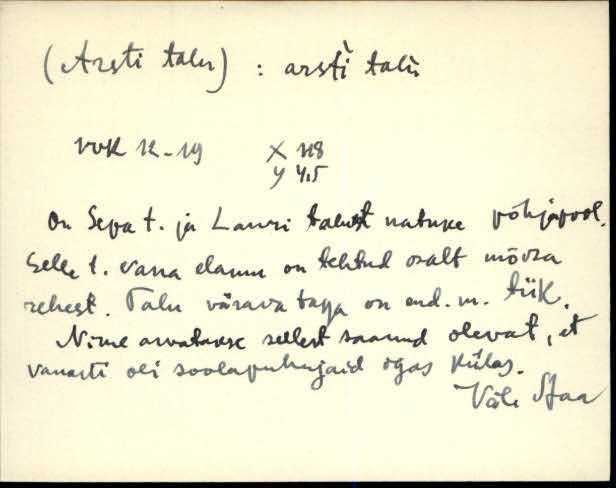 (Arsti talu) : arsti talu
VVK 12-19 X 118
y 4,5
On Sepa t. ja Lauri talust natuke põhjapool.
Selle t. vana elamu on tehtud osalt mõisa
rehest. Talu värava taga on end. m. tiik.
Nime arvatakse sellest saanud olevat, et
vanasti oli soolapuhujaid igas külas.